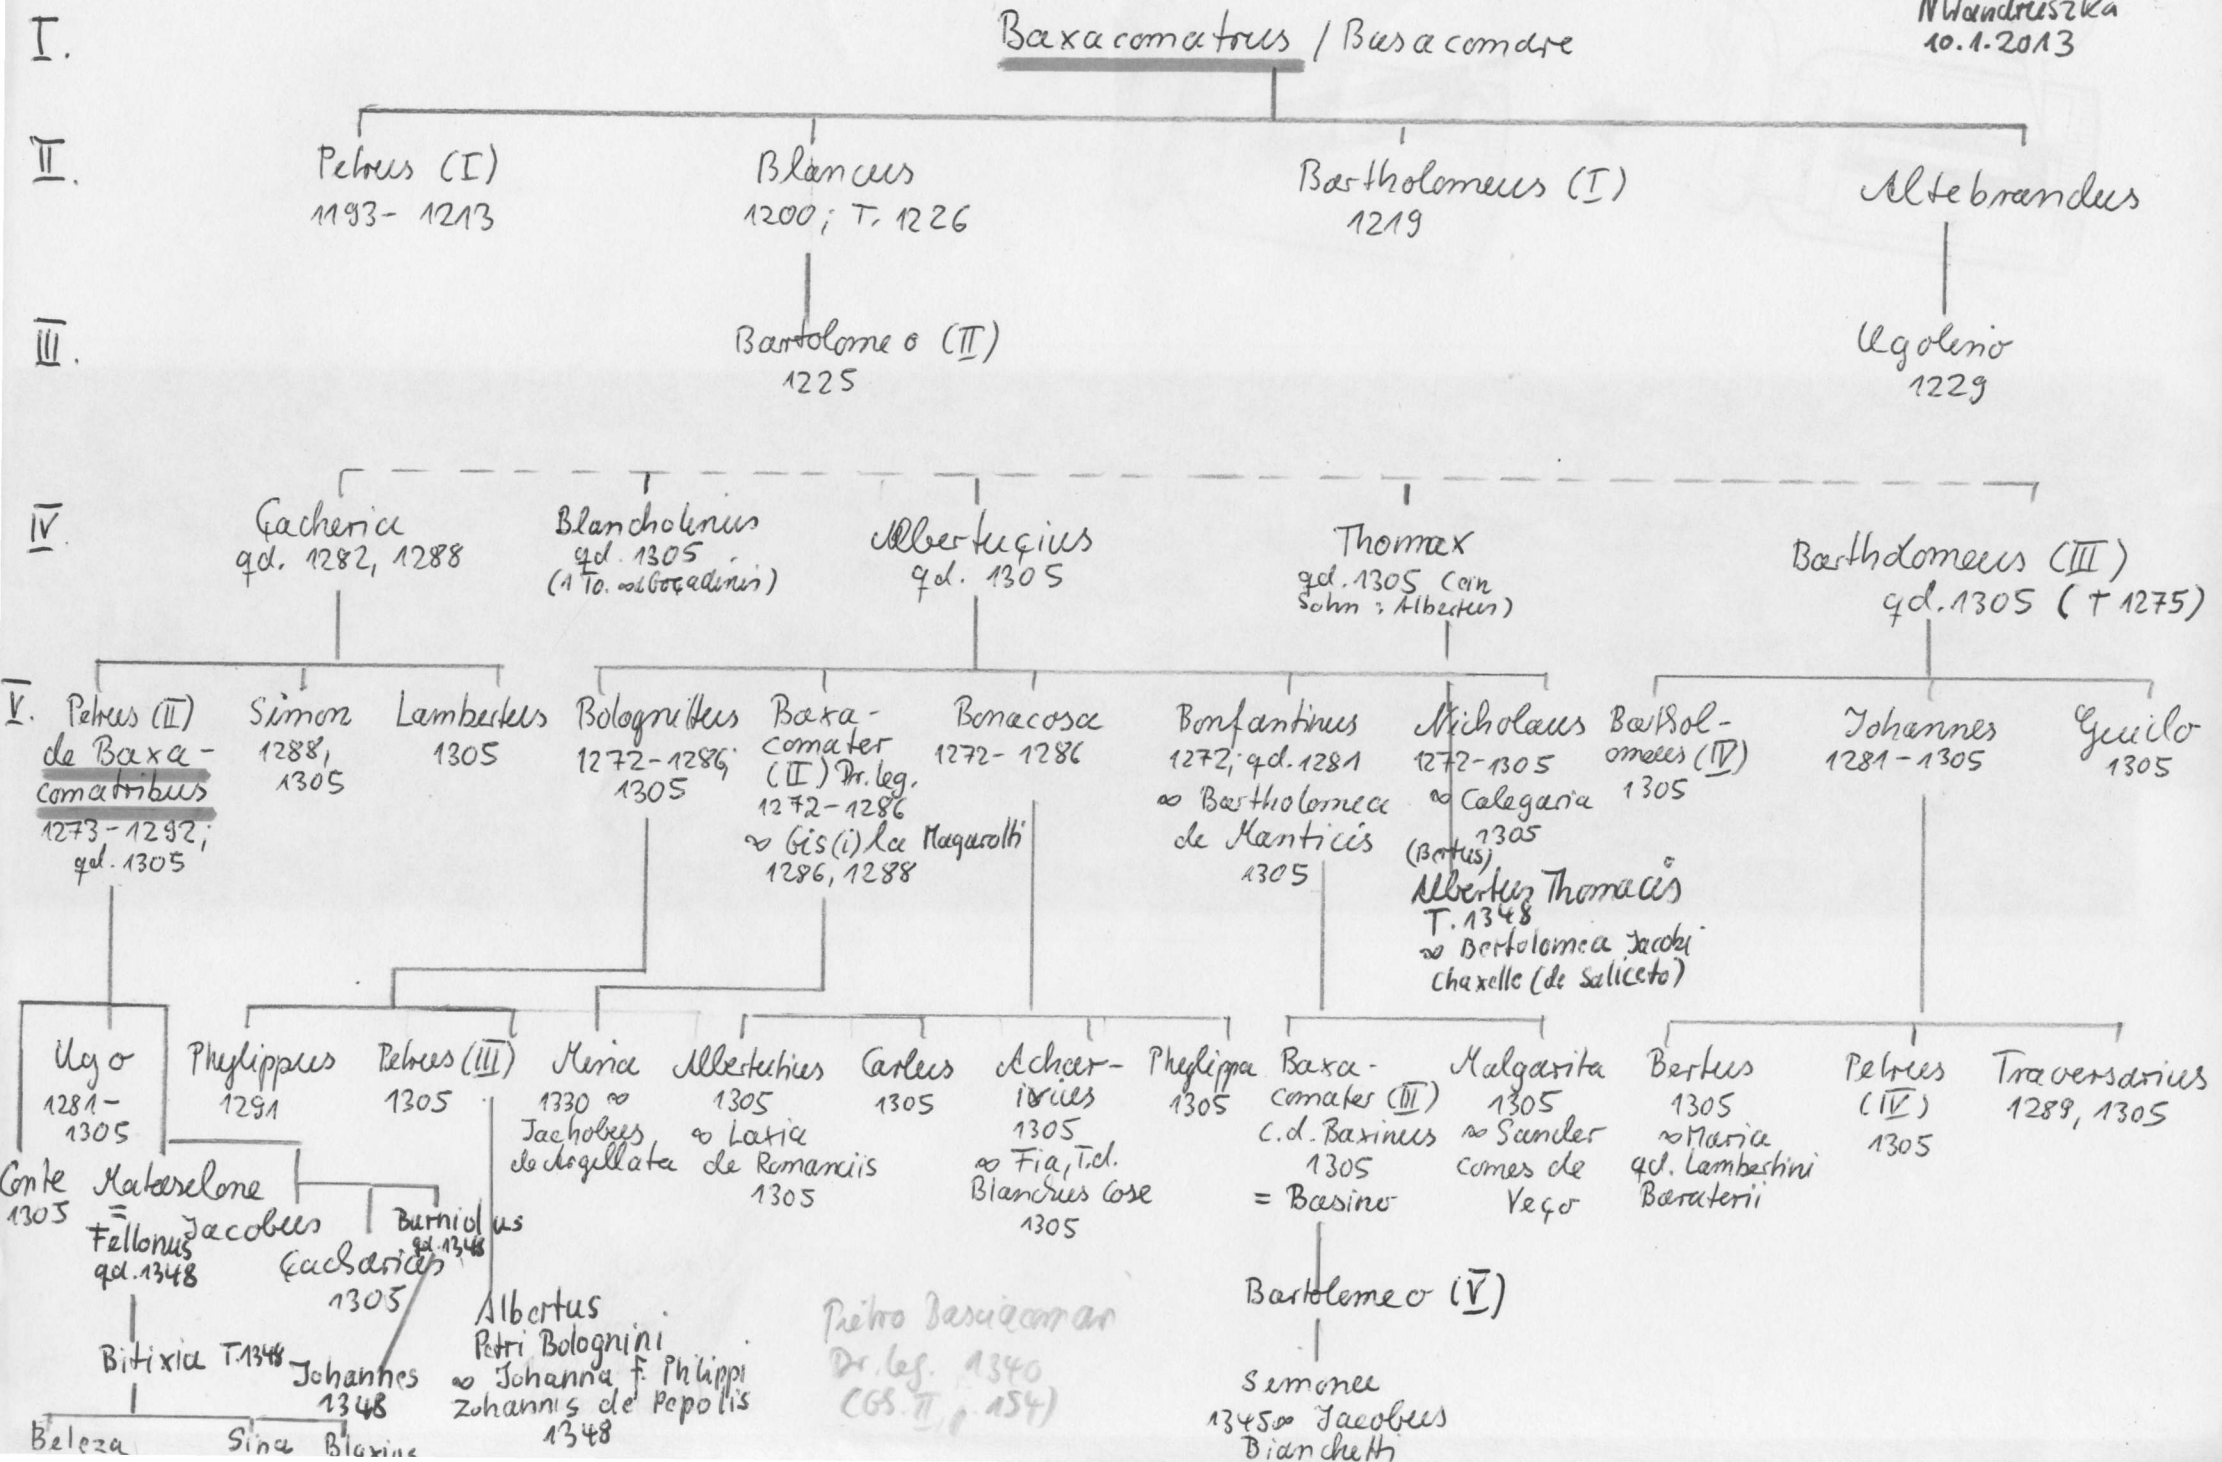 NWandruszka
10.1.2013
I.
Baxacomatrus / Basacomare
II.
Petrus (I)
1193- 1213
Blancus
1200; T. 1226
Bartholomeus (I)
1219
Altebrandus
III.
Bartolomeo (II)
1225
Ugolino
1229
IV.
Çacheria
qd. 1282, 1288
Blancholinus
qd. 1305
(1 To. ∞ de Goçadinis)
Albertuçius
qd. 1305
Thomax
qd. 1305 (ein
Sohn : Albertus)
Bartholomeus (III)
qd. 1305 († 1275)
V.
Petrus (II)
de Baxa-
comatribus
1273-1292;
qd. 1305
Simon
1288,
1305
Lambertus
1305
Bolognittus
1272-1286;
1305
Baxa-
comater
(II) Dr. leg.
1272-1286
∞ Gis(i)la Magarotti
1286, 1288
Bonacosa
1272- 1286
Bonfantinus
1272; qd. 1281
∞ Bartholomea
de Manticis
1305
Nicholaus
1272-1305
∞ Calegaria
1305
(Bertus)
Albertus Thomacis
T. 1348
∞ Bertolomea Jacobi
Chaxelle (de Saliceto)
Barthol-
omeus (IV)
1305
Johannes
1281-1305
Guido
1305
Ugo
1281-
1305
Phylippus
1291
Petrus (III)
1305
Mina
1330 ∞
Jachobus
de Argellata
Albertutius
1305
∞ Laxia
de Romanciis
1305
Carlus
1305
Achar-
ixius
1305
∞ Fia, T.d.
Blanchus Cose
1305
Phylippa
1305
Baxa-
comater (III)
c.d. Baxinus
1305
= Basino
Malgarita
1305
∞ Sander
comes de
Veço
Bertus
1305
∞ Maria
qd. Lambertini
Baraterii
Petrus
(IV)
1305
Traversarius
1289, 1305
Conte
1305
Mataselone
=
Fellonus
qd. 1348
Jacobus
Çacharias
1305
Burniolus
qd. 1348
Bitixia T. 1348
Johannes
1348
Albertus
Petri Bolognini
∞ Johanna f. Philippi
Zohannis de Pepolis
1348
Pietro Basciacomar
Dr. leg. 1340
(GS. II, p. 154)
Bartolomeo (V)
Semonee
1345 ∞ Jacobus
Bianchetti
Beleza
Sina
Blaxius